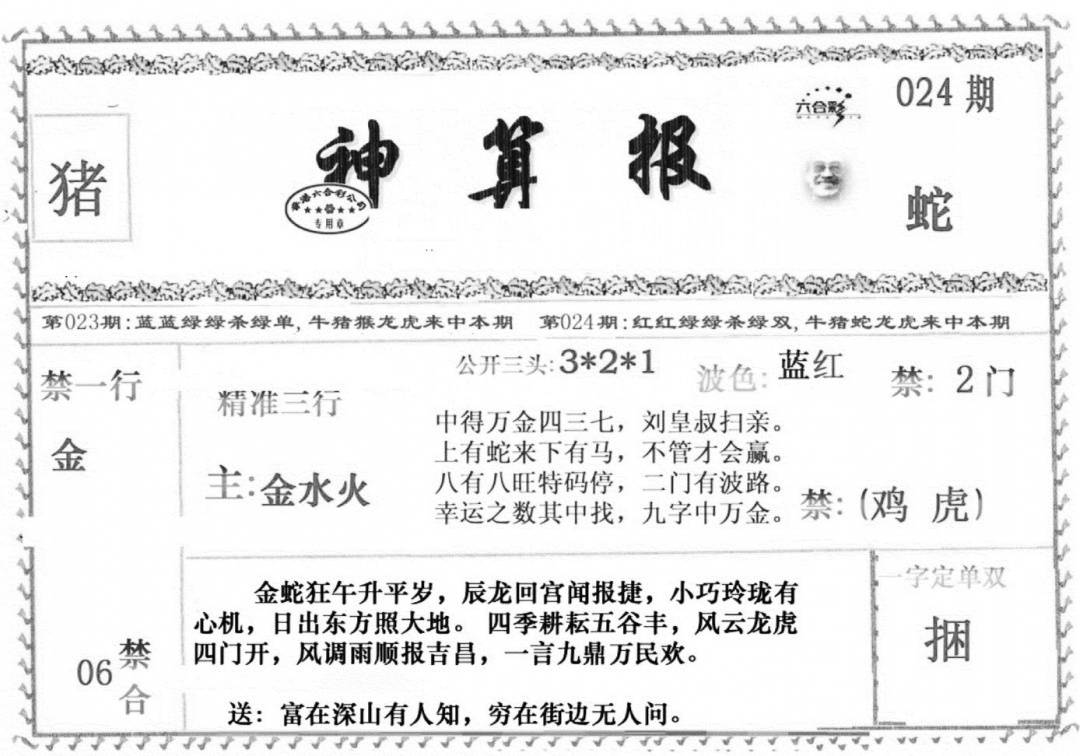 024期
六合彩
猪
神算报
香港六合彩公司
专用章
蛇
第023期:蓝蓝绿绿杀绿单,牛猪猴龙虎来中本期 第024期:红红绿绿杀绿双,牛猪蛇龙虎来中本期
禁一行
金
精准三行
主:金水火
公开三头:3*2*1
波色:蓝红
禁:2门
中得万金四三七，刘皇叔扫亲。
上有蛇来下有马，不管才会赢。
八有八旺特码停，二门有波路。
幸运之数其中找，九字中万金。
禁:(鸡 虎)
06禁合
金蛇狂午升平岁，辰龙回宫闻报捷，小巧玲珑有
心机，日出东方照大地。 四季耕耘五谷丰，风云龙虎
四门开，风调雨顺报吉昌，一言九鼎万民欢。
送：富在深山有人知，穷在街边无人问。
一字定单双
捆